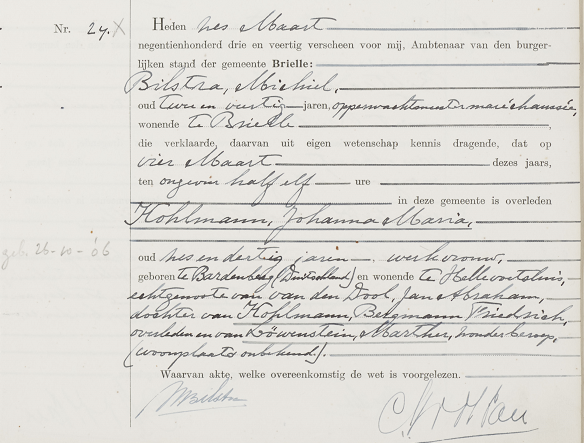 Nr. 24.
Heden zes Maart
negentienhonderd drie en veertig verscheen voor mij, Ambtenaar van den burger-
lijken stand der gemeente Brielle:
Bilstra, Michiel,
oud twee en veertig jaren, opperwachtmeester maréchaussée,
wonende te Brielle,
die verklaarde, daarvan uit eigen wetenschap kennis dragende, dat op
vier Maart dezes jaars,
ten ongeveer half elf ure
in deze gemeente is overleden
Kohlmann, Johanna Maria,
geb. 26-10-'06
oud zes en dertig jaren werkvrouw,
geboren te Bardenberg (Duitschland) en wonende te Hellevoetsluis,
echtgenoote van van den Dool, Jan Abraham,
dochter van Kohlmann, Bergmann Friedrich,
overleden en van Löwenstein, Marther, zonder beroep,
(woonplaats onbekend).
Waarvan akte, welke overeenkomstig de wet is voorgelezen.
MBilstra